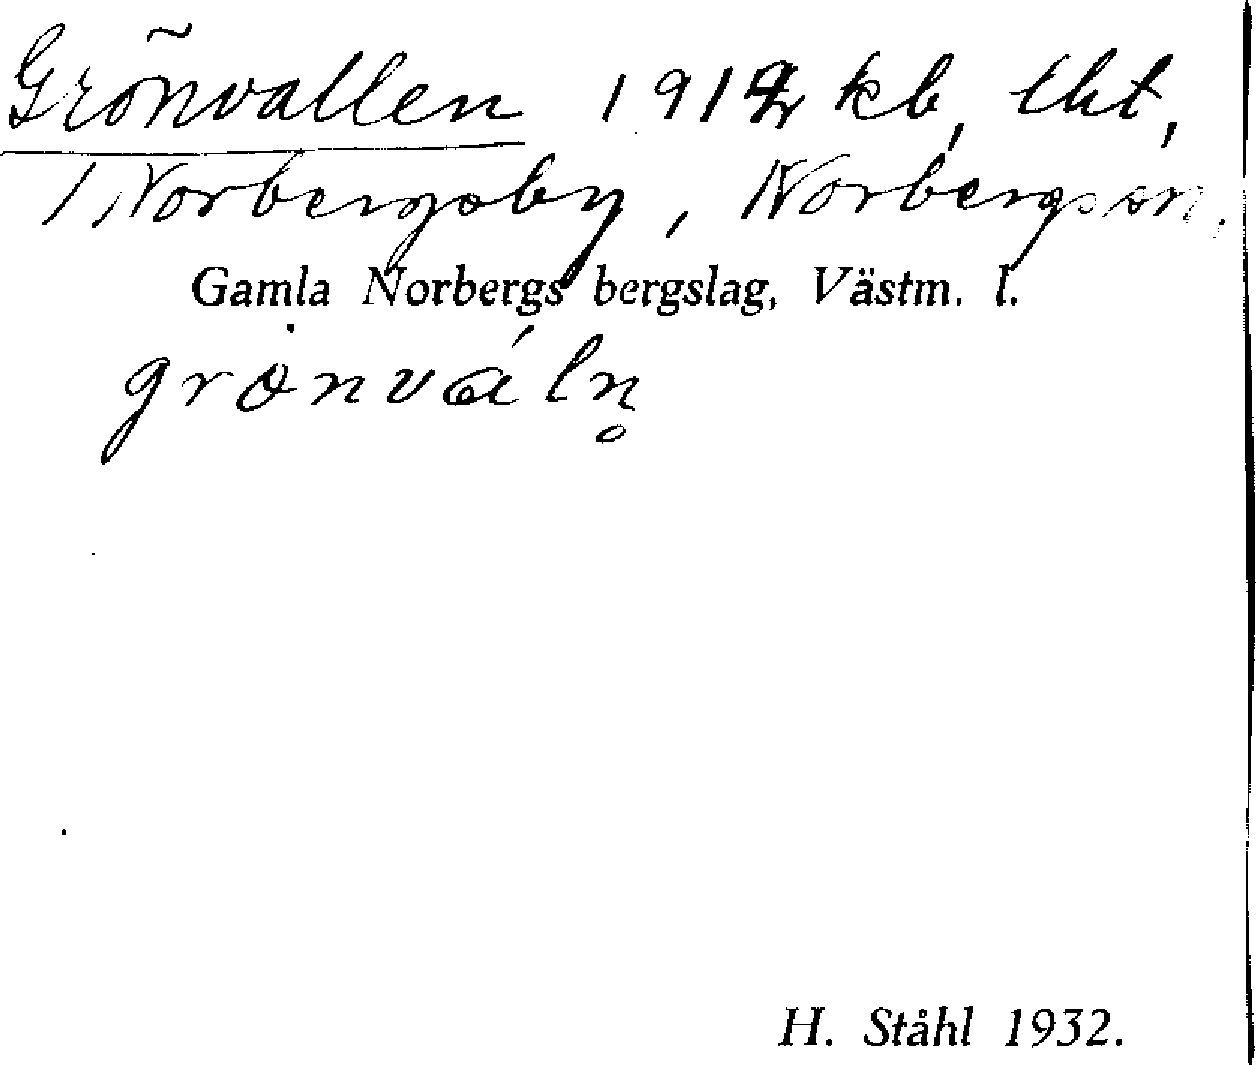 Grönvallen 1912 kb, tht,
/ Norbergsby, Norbergs sn.
Gamla Norbergs bergslag, Västm. l.
grönvǻln̥
H. Ståhl 1932.